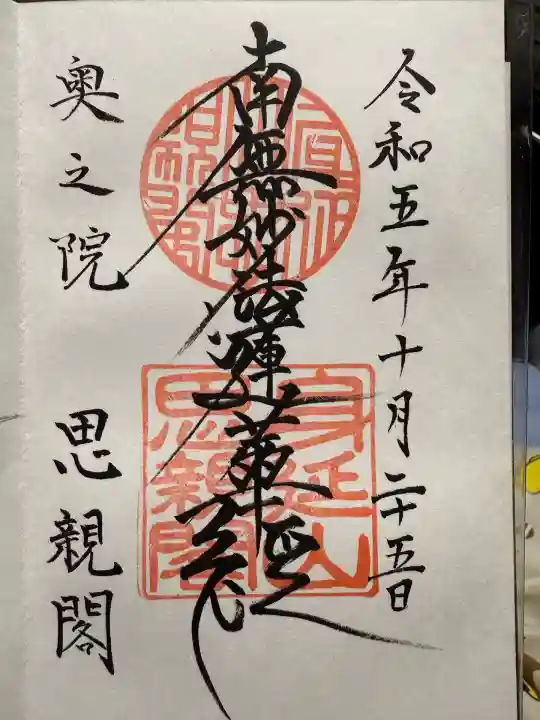 令和五年十月二十五日
南無妙法蓮華経
身延山
思親閣
奥之院 思親閣